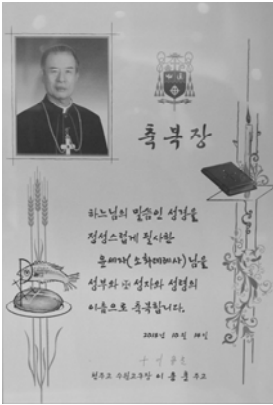 축복장
하느님의 말씀인 성경을
정성스럽게 필사한
윤세자(소화데레사)님을
성부와 ✠ 성자와 성령의
이름으로 축복합니다.
2018년 10월 14일
천주교 수원교구장 이용훈 주교